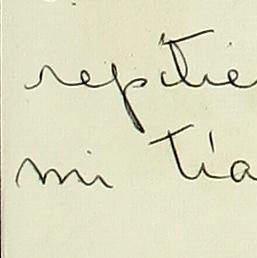 repitie
mi tía